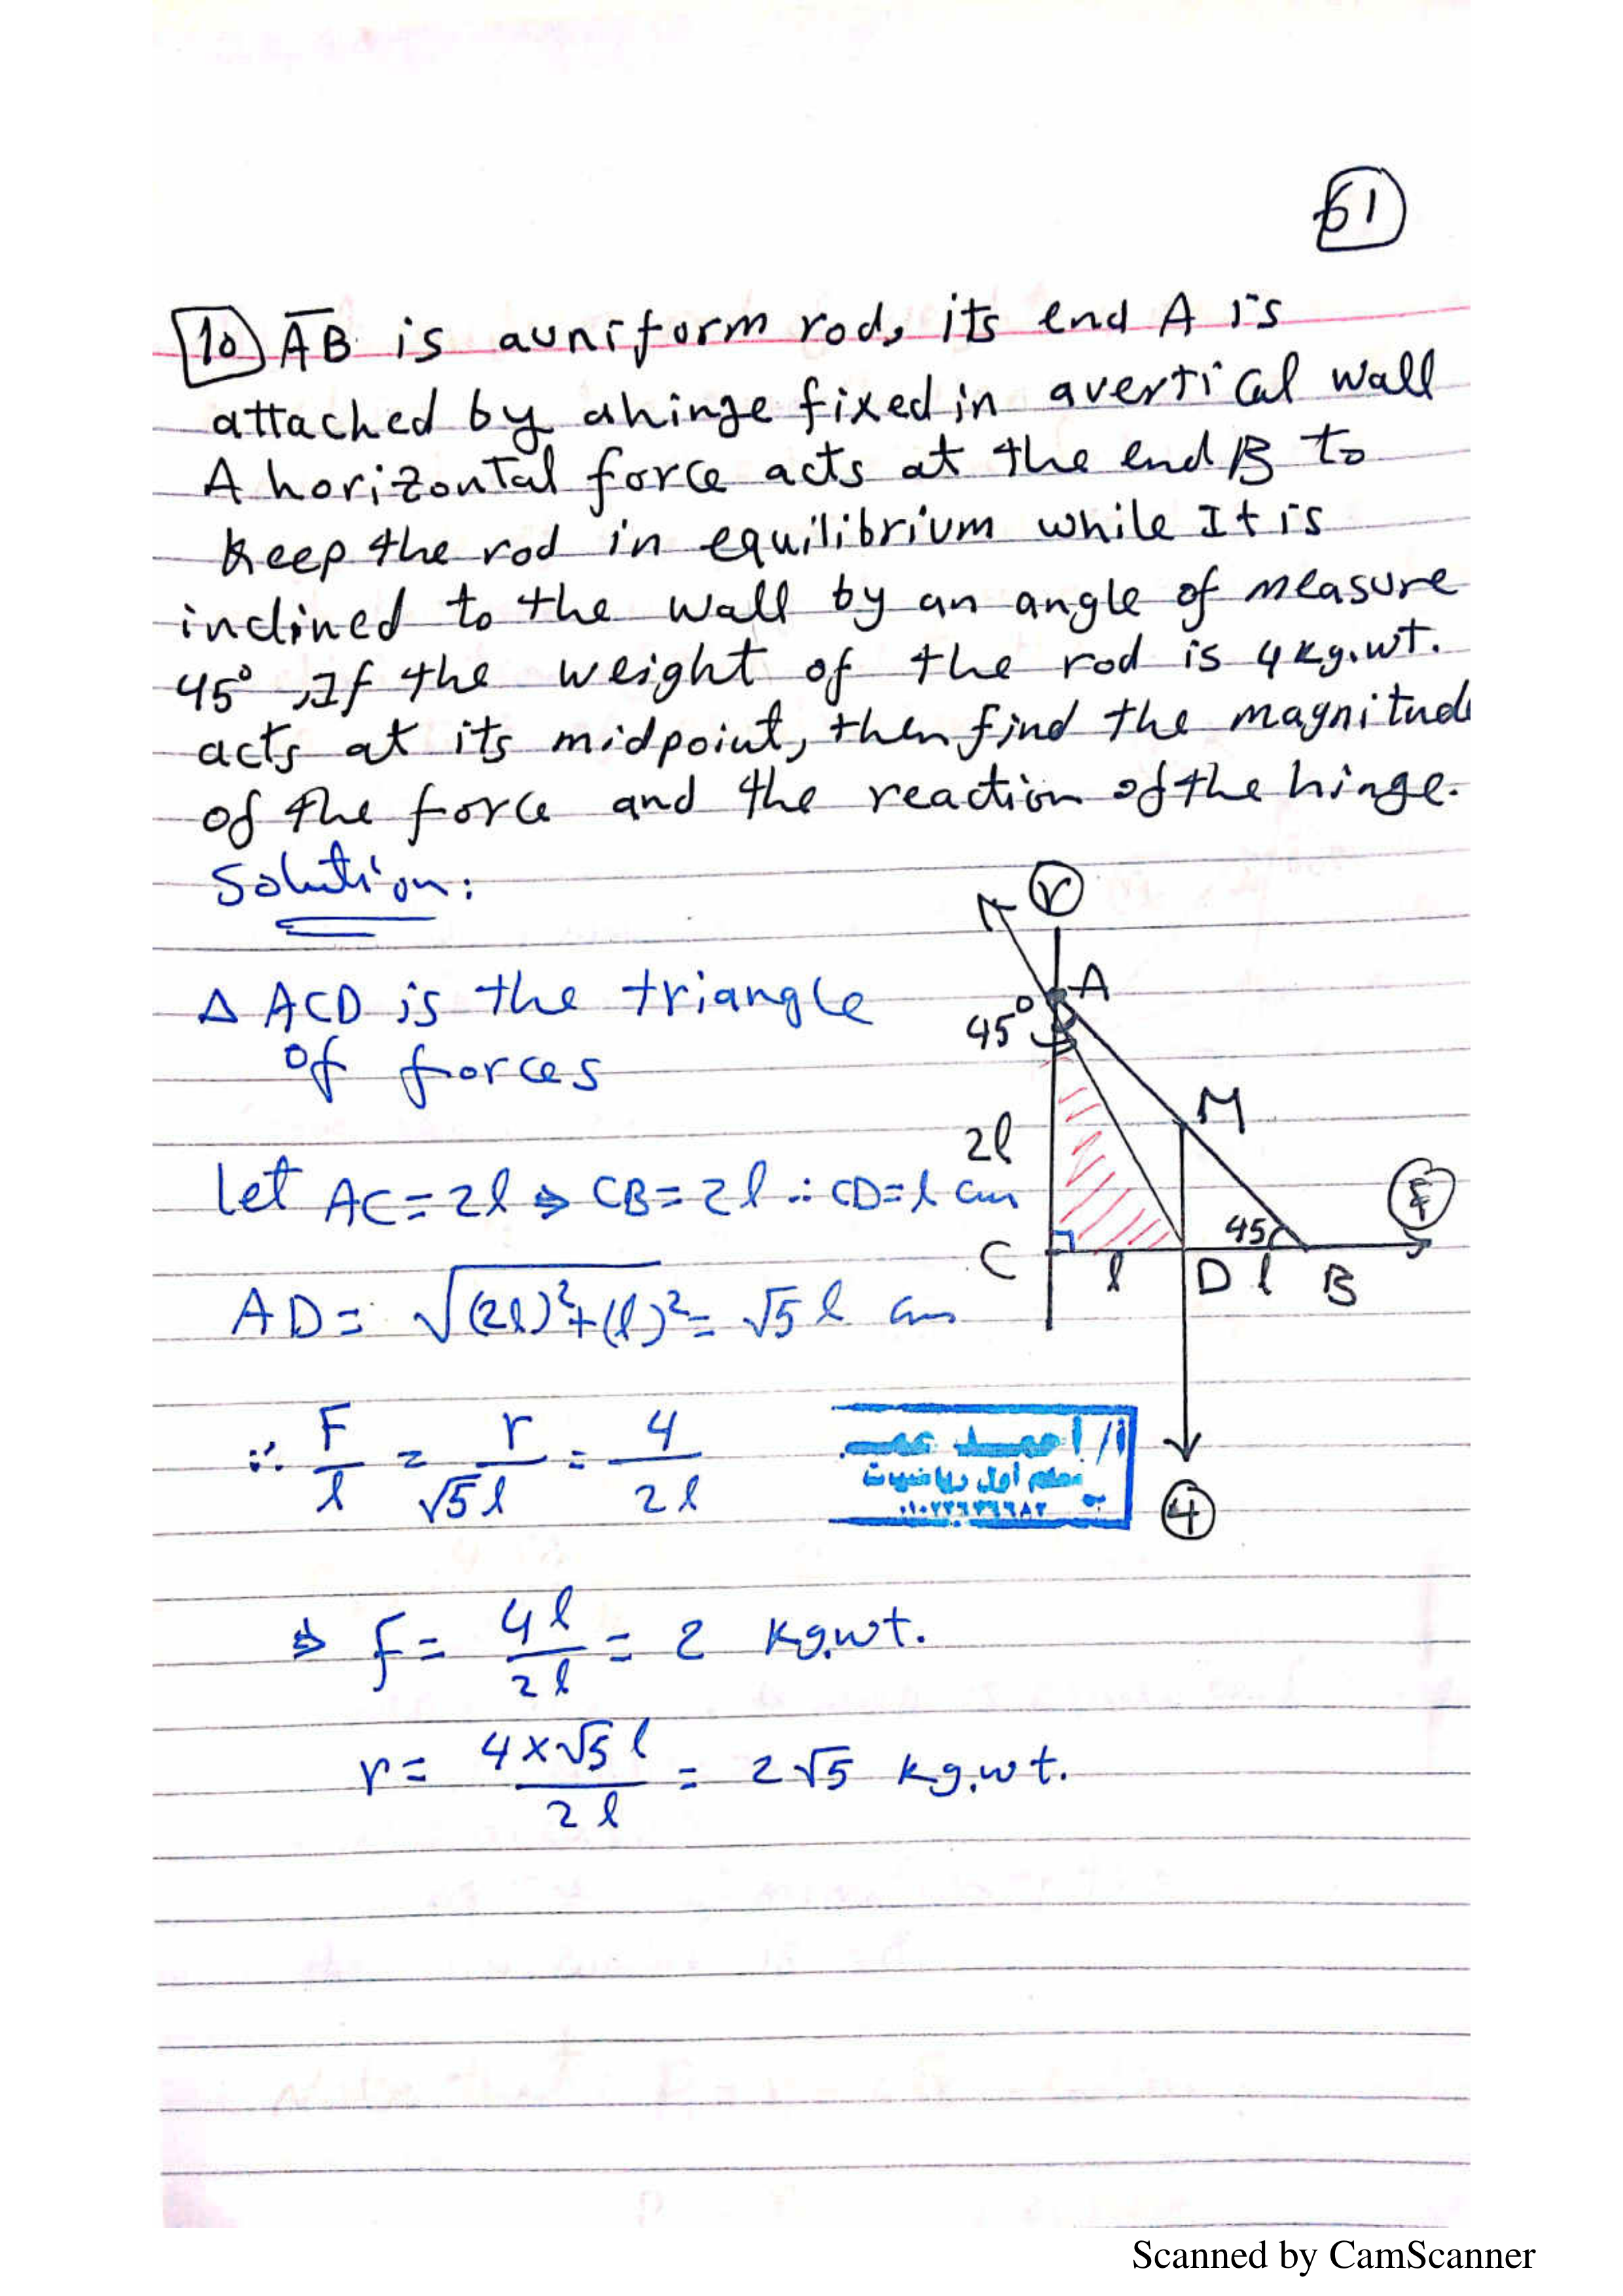 61
10 AB is auniform rod, its end A is
attached by ahinge fixed in avertical wall
A horizontal force acts at the end B to
Keep the rod in equilibrium while It is
inclined to the wall by an angle of measure
45°, If the weight of the rod is 4 kg.wt.
acts at its midpoint, then find the magnitude
of the force and the reaction of the hinge.
Solution:
Δ ACD is the triangle
of forces
let AC = 2l ⇒ CB = 2l ∴ CD = l cm
AD = √(2l)²+(l)² = √5 l cm
∴ F/l = r/√5 l = 4/2l
⇒ f = 4l/2l = 2 kg.wt.
r = 4×√5 l/2l = 2√5 kg.wt.
r
A
45°
M
2l
F
45
C
l
D
l
B
4
أ/ احمد عمر
معلم أول رياضيات
Scanned by CamScanner